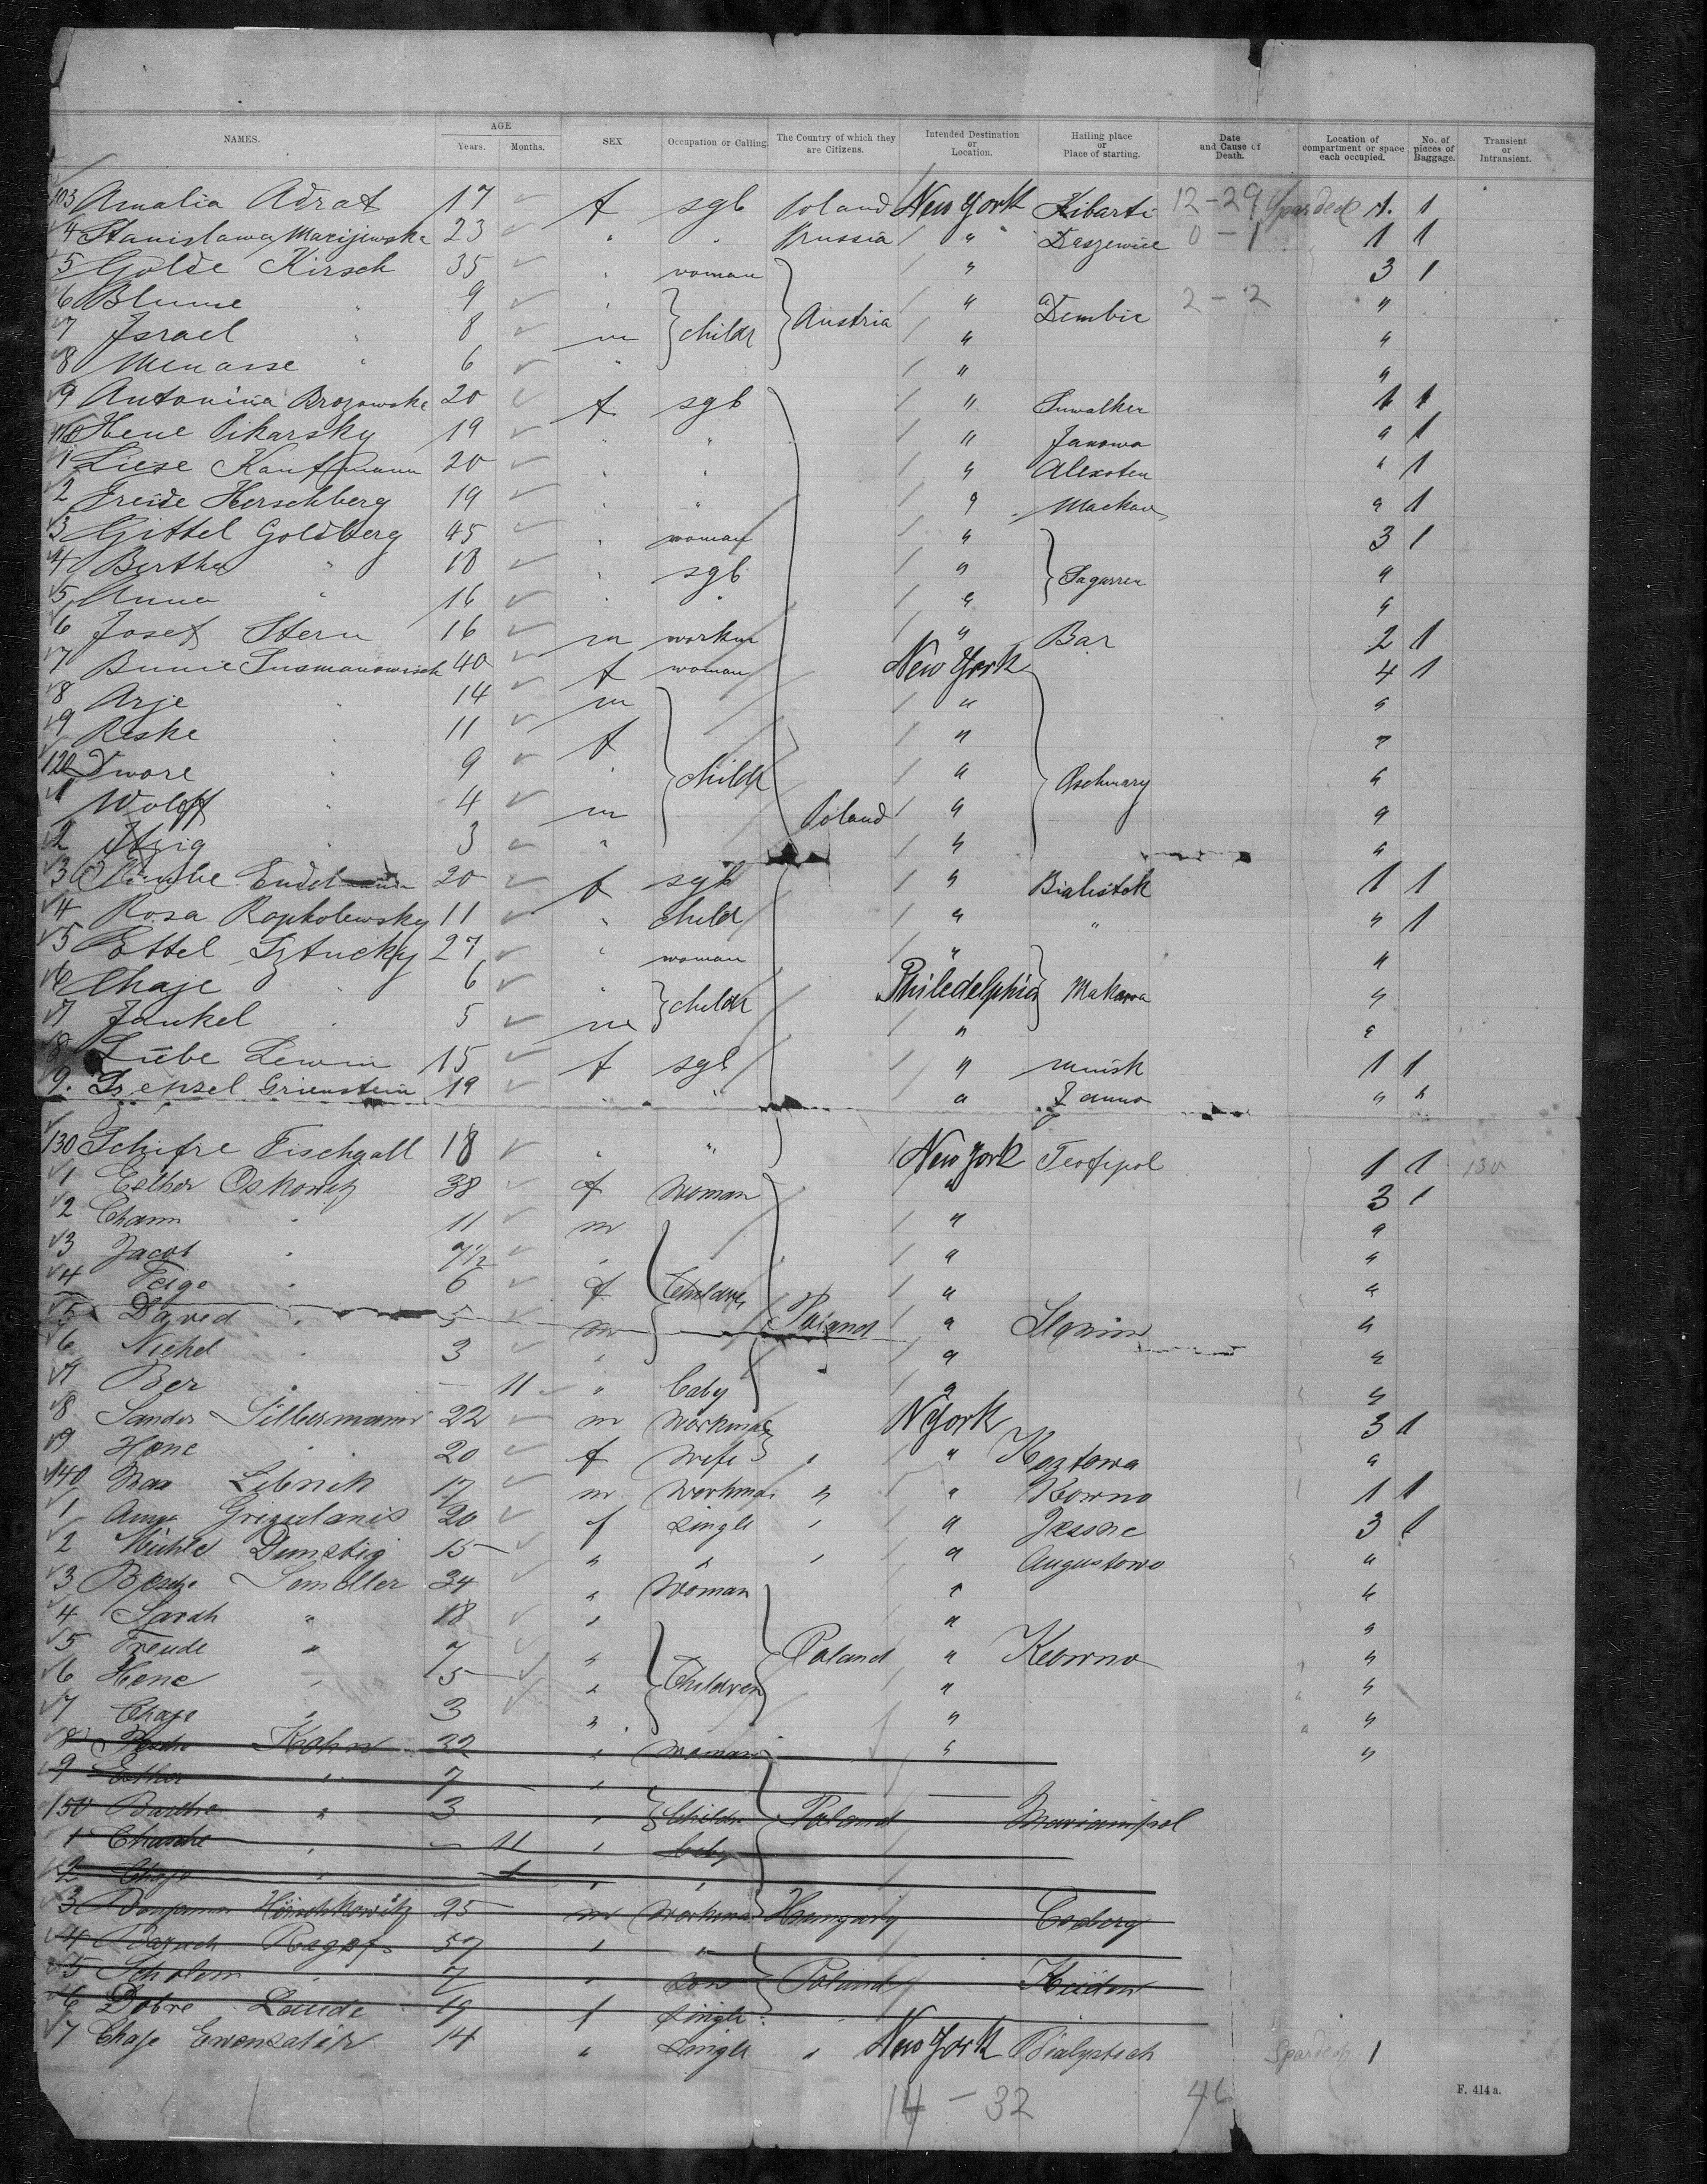 NAMES. AGE Years. Months. SEX Occupation or Calling. The Country of which they are Citizens. Intended Destination or Location. Hailing place or Place of starting. Date and Cause of Death. Location of compartment or space each occupied. No. of pieces of Baggage. Transient or Intransient.
103 Amalia Adrat 17 f sgl Poland New York Kibarti 12-29 Spardeck 1. 1
4 Stanislawa 23 " " Prussia " Daszewice 0-1 1 1
5 Golde Kirsch 35 " woman " 3 1
6 Blume " 9 " " Dembic 2-2 "
7 Israel " 8 m childr Austria " "
8 Menasse " 6 " " "
9 Antonina Brozowska 20 f sgl " Suwalker 1 1
110 Hene Pikarsky 19 " " " Janowa " 1
1 Liese Kauffmann 20 " " " Alexoten " 1
2 Freide Herschberg 19 " " " " 1
3 Gittel Goldberg 45 " woman " 3 1
4 Bertha " 18 " sgl " Sagarren "
5 Anna " 16 " " " "
6 Josef Stern 16 m workm " Bar 2 1
7 Susmanowisch 40 f woman New York 4 1
8 Arje " 14 m " "
9 Reske " 11 f " "
120 Dwore " 9 " childr " Oschmary "
1 Wolff " 4 m Poland " "
2 Itzig " 3 " " "
3 20 f sgl " Bialistok 1 1
4 Rosa Rapholewsky 11 " child " " " 1
5 Ettel Sztucky 27 " woman " "
6 Chaje " 6 " childr Philedelphia Makowa "
7 Jankel " 5 m " "
8 Liebe Lewin 15 f sgl " Minsk 1 1
9. Grienstein 19 " " " " "
130 Schifre Fischgall 18 " " New York Teofipol 1 1 130
1 Esther Oskowitz 38 f Woman " 3 1
2 " 11 m " "
3 Jacob " 7½ " " "
4 Feige " 6 f Children " "
5 David " 5 m Poland " Slonim "
6 " 3 " " "
7 Ber " — 11 " baby " "
8 Sander Silbermann 22 m workman N York 3 1
9 Hene " 20 f wife " " "
140 Max Libnik 17 m workman " " Kowno 1 1
1 20 f single " " 3 1
2 15 " " " " Augustowo "
3 34 " Woman " "
4 Sarah " 18 " " "
5 Freude " 7 " Poland " Kowno "
6 Hene " 5 " Children " "
7 Chaje " 3 " " "
8 Kohn 32 " woman " "
9 Esther " 7 "
150 " 3 " Childr Poland Mariampol
1 Chasche " — 11 " baby
2 Chaje " " "
3 Benjamin 25 m workman Hungary
4 57 " "
5 Scholem " 7 " son Poland
6 Dobre 19 f single "
7 Chaje 14 " single " New York Spardeck 1
14 - 32 46
F. 414 a.